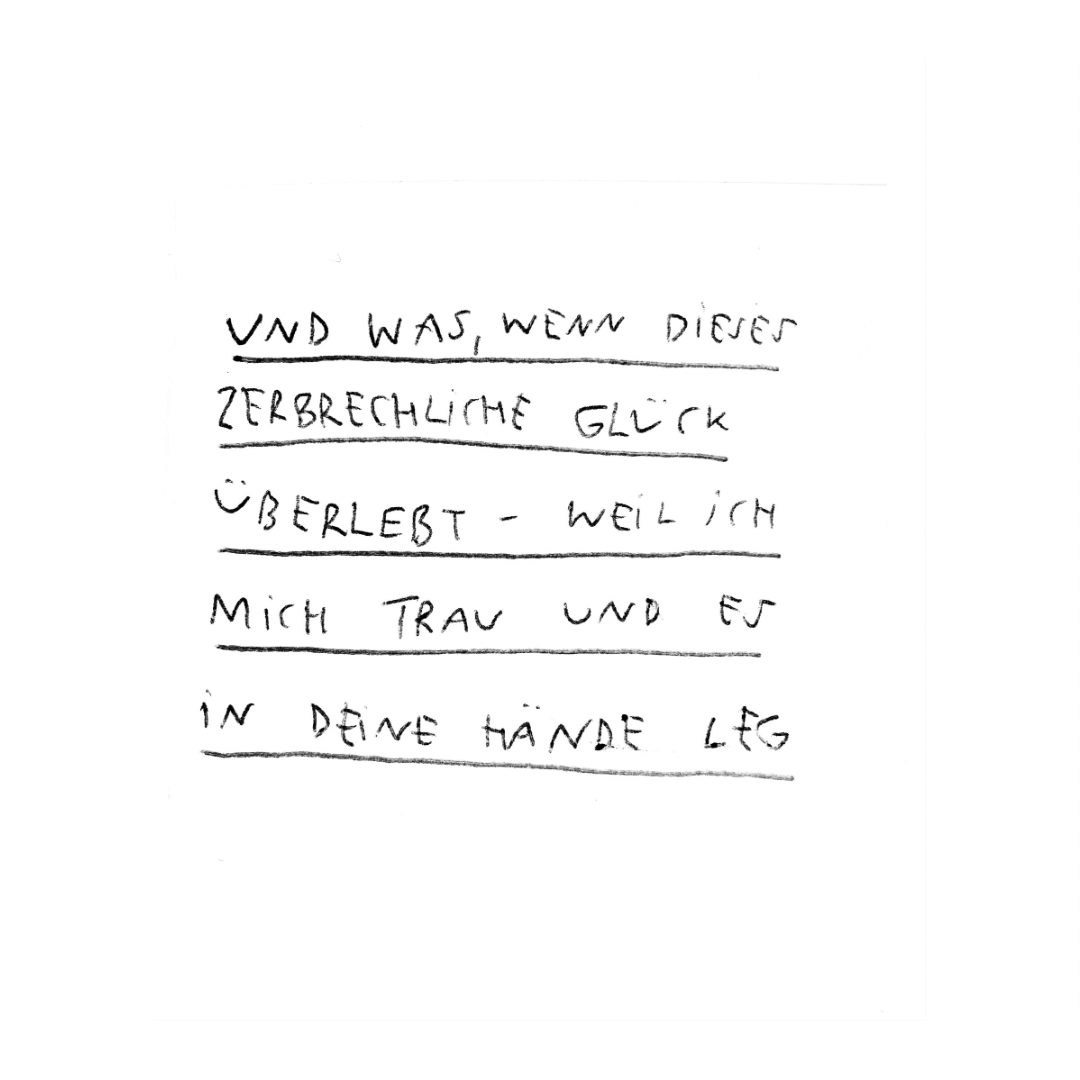 UND WAS, WENN DIESES
ZERBRECHLICHE GLÜCK
ÜBERLEBT - WEIL ICH
MICH TRAU UND ES
IN DEINE HÄNDE LEG